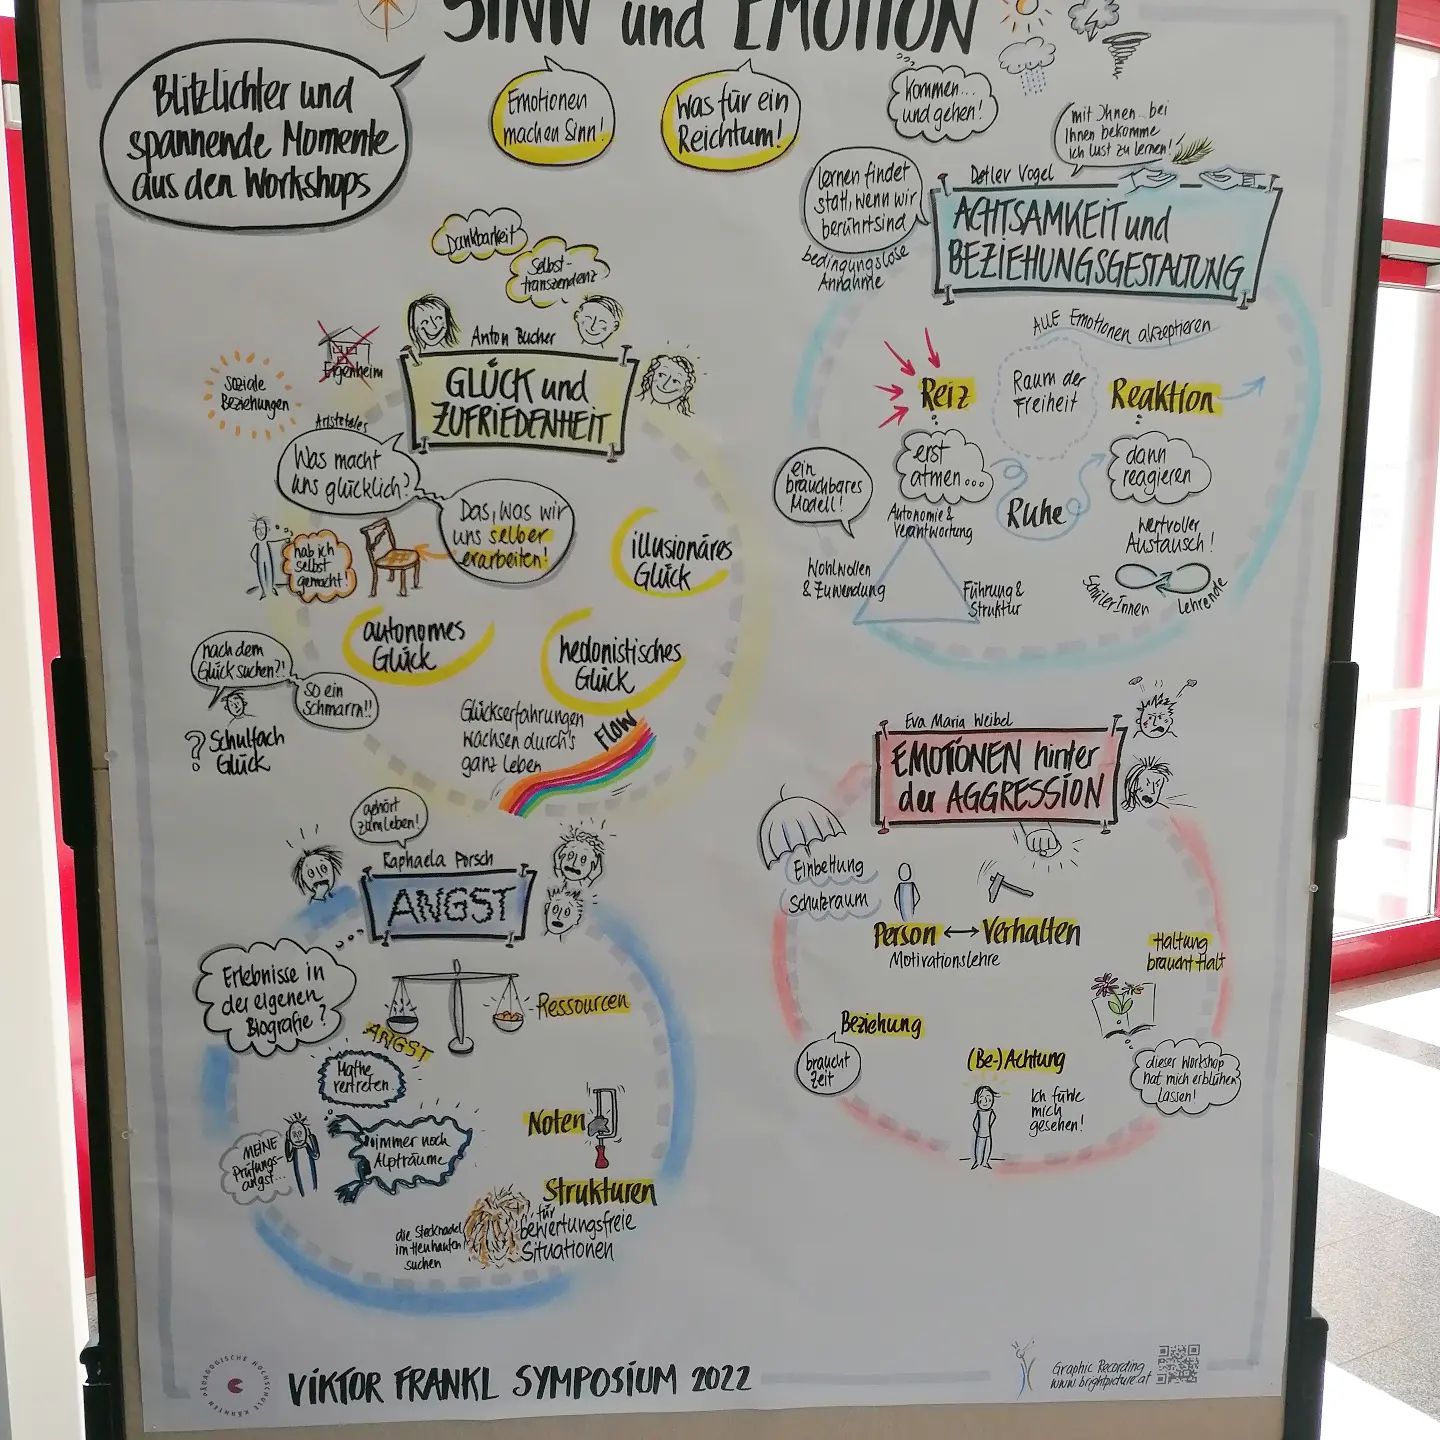 SINN und EMOTION
Blitzlichter und
spannende Momente
aus den Workshops
Emotionen
machen Sinn!
Was für ein
Reichtum!
kommen...
und gehen!
mit Ihnen.. bei
Ihnen bekomme
ich lust zu lernen!
lernen findet
statt, wenn wir
berührt sind
bedingungslose
Annahme
Detlev Vogel
ACHTSAMKEIT und
BEZIEHUNGSGESTALTUNG
ALLE Emotionen akzeptieren
Reiz
Raum der
Freiheit
Reaktion
erst
atmen...
Ruhe
dann
reagieren
ein
brauchbares
Modell!
Autonomie &
Verantwortung
Wohlwollen
& Zuwendung
Führung &
Struktur
wertvoller
Austausch!
SchülerInnen
Lehrende
Dankbarkeit
Selbst-
transzendenz
Anton Bucher
GLÜCK und
ZUFRIEDENHEIT
Eigenheim
Soziale
Beziehungen
Aristoteles
Was macht
uns glücklich?
Das, was wir
uns selber
erarbeiten!
hab ich
selbst
gemacht!
illusionäres
Glück
autonomes
Glück
hedonistisches
Glück
nach dem
Glück suchen?!
so ein
Schmarrn!!
? Schulfach
Glück
Glückserfahrungen
wachsen durch's
ganz Leben
FLOW
Eva Maria Weibel
EMOTIONEN hinter
der AGGRESSION
Einbettung
Schutzraum
Person ↔ Verhalten
Motivationslehre
Haltung
braucht Halt
Beziehung
braucht
Zeit
(Be-)Achtung
Ich fühle
mich
gesehen!
dieser Workshop
hat mich erblühen
lassen!
gehört
zum Leben!
Raphaela Porsch
ANGST
Erlebnisse in
der eigenen
Biografie?
ANGST
Ressourcen
Mathe
vertreten
MEINE
Prüfungs-
angst...
immer noch
Alpträume
Noten
Strukturen
für
bewertungsfreie
Situationen
die Stecknadel
im Heuhaufen
suchen
PÄDAGOGISCHE HOCHSCHULE KÄRNTEN
VIKTOR FRANKL SYMPOSIUM 2022
Graphic Recording
www.brightpicture.at